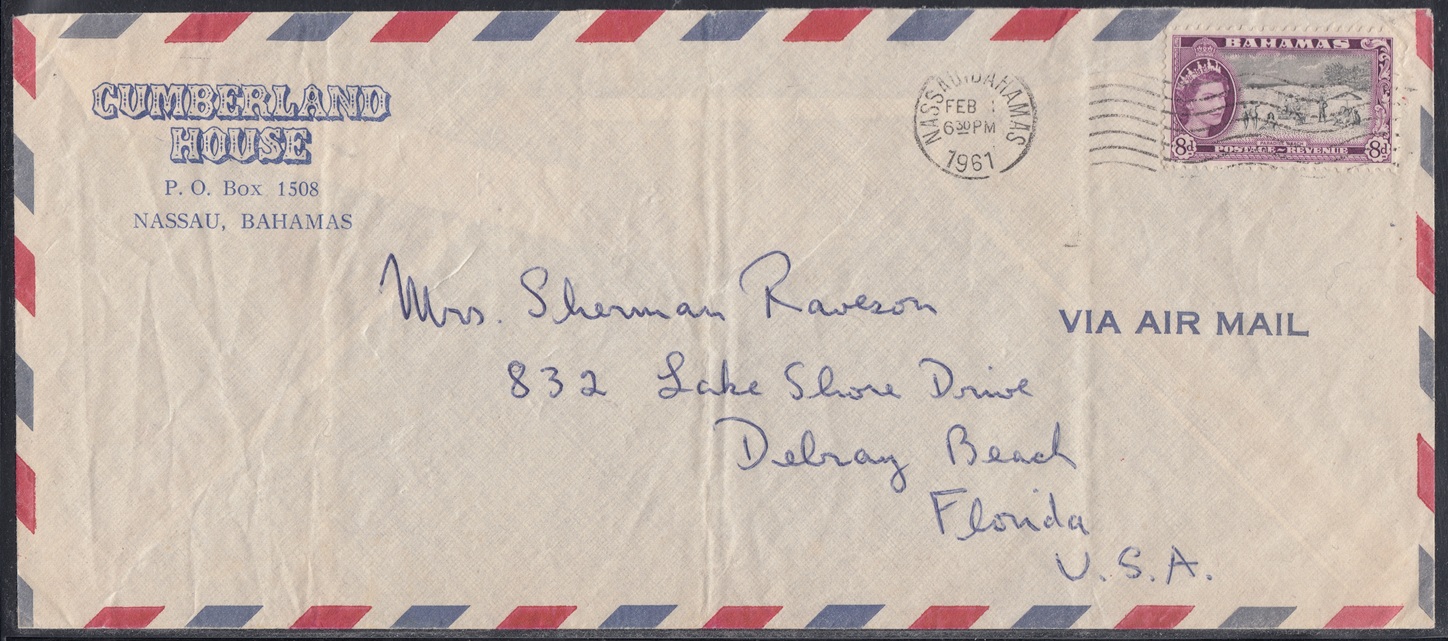 CUMBERLAND
HOUSE
P. O. Box 1508
NASSAU, BAHAMAS
NASSAU, BAHAMAS
FEB 1
6 30 PM
1961
BAHAMAS
8d 8d
POSTAGE ~ REVENUE
Mrs. Sherman Raveson
VIA AIR MAIL
832 Lake Shore Drive
Delray Beach
Florida
U.S.A.